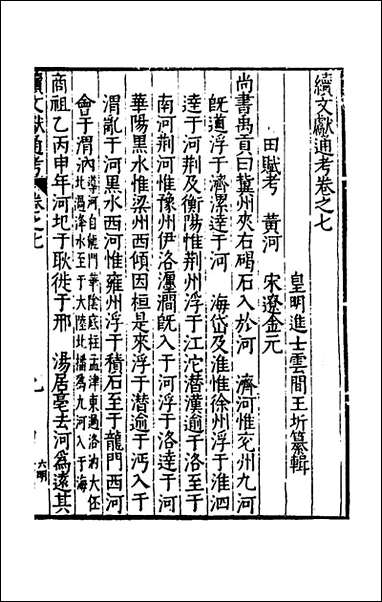 續文獻通考卷之七
皇明進士雲間王圻纂輯
田賦考 黃河 宋遼金元
尚書禹貢曰冀州夾右碣石入於河 濟河惟兗州九河
旣道浮于濟漯達于河 海岱及淮惟徐州浮于淮泗
達于河荆及衡陽惟荆州浮于江沱潛漢逾于洛至于
南河荆河惟豫州伊洛瀍澗旣入于河浮于洛達于河
華陽黑水惟梁州西傾因桓是來浮于潛逾于沔入于
渭亂于河黑水西河惟雍州浮于積石至于龍門西河
會于渭汭導河自龍門華陰底柱孟津東過洛汭大伾
北過洚水至于大陸北播爲九河入于海
商祖乙丙申年河圮于耿徙于邢 湯居亳去河爲遠其
續文獻通考 卷之七